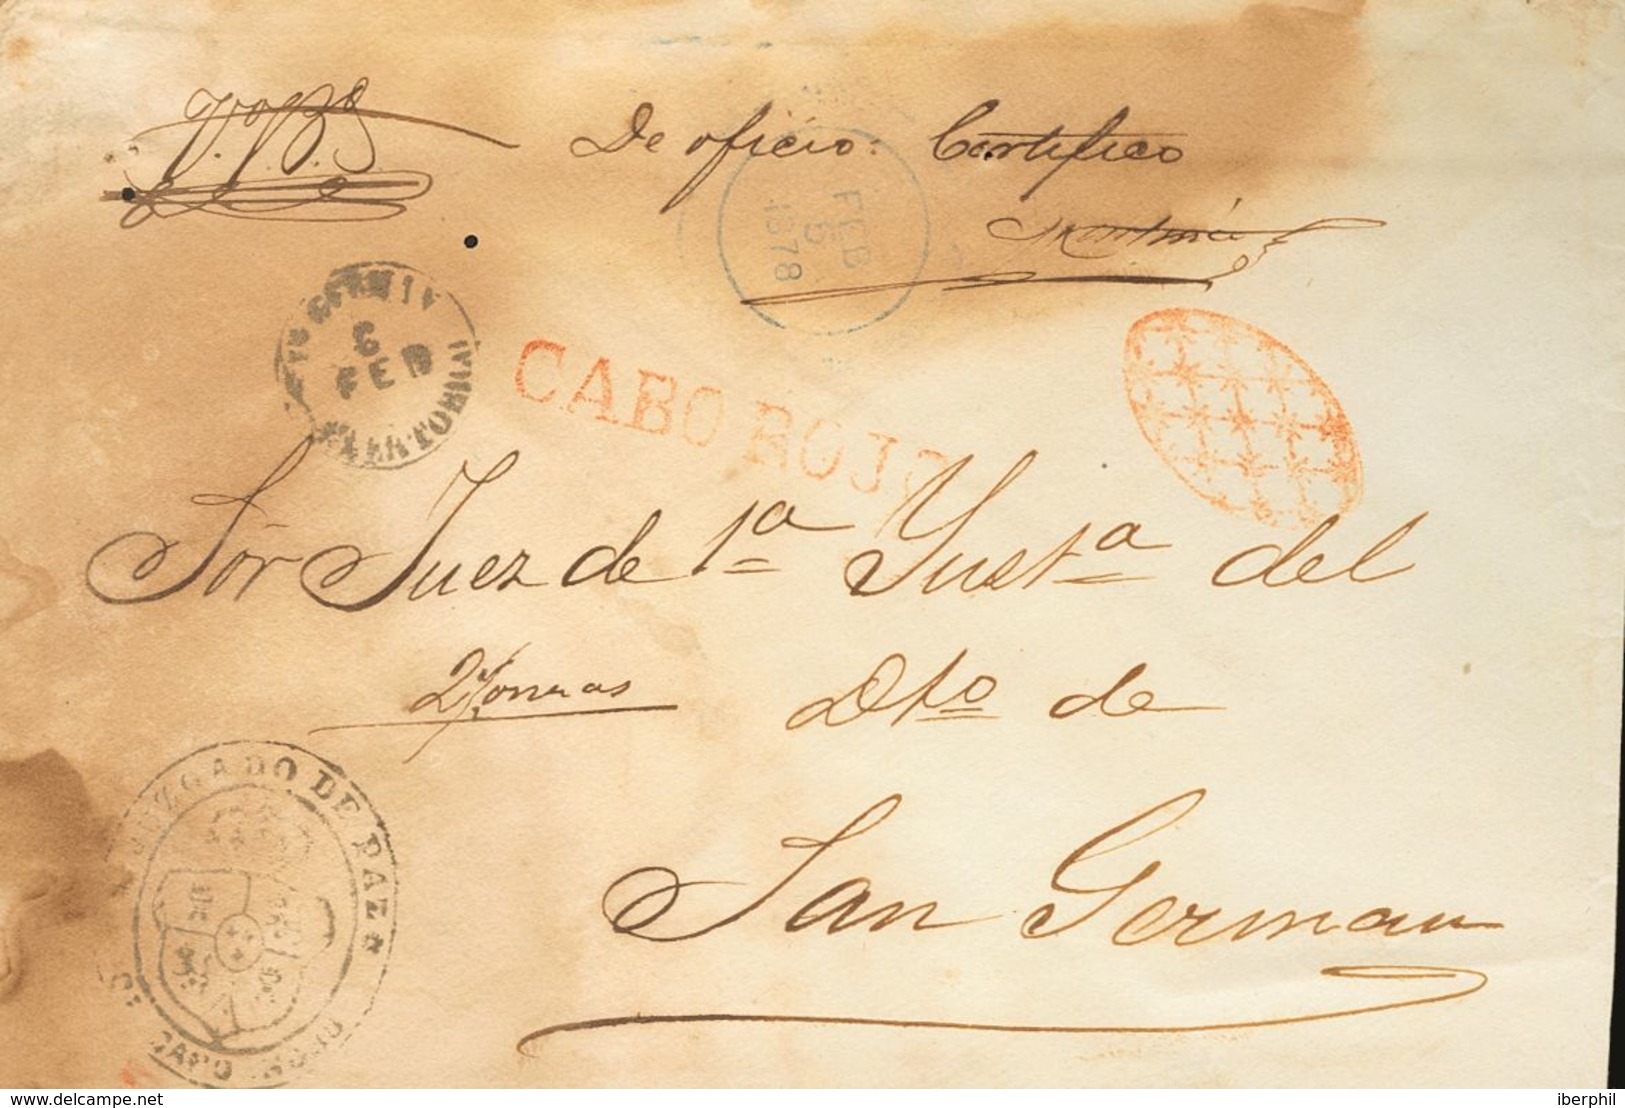 De oficio: Certifico
FEB
5
1878
6
FEB
CABO ROJO
Sör Juez de 1ª Ynstª del
Dtº de
San German
JUZGADO DE PAZ
CABO-ROJO
iberphil